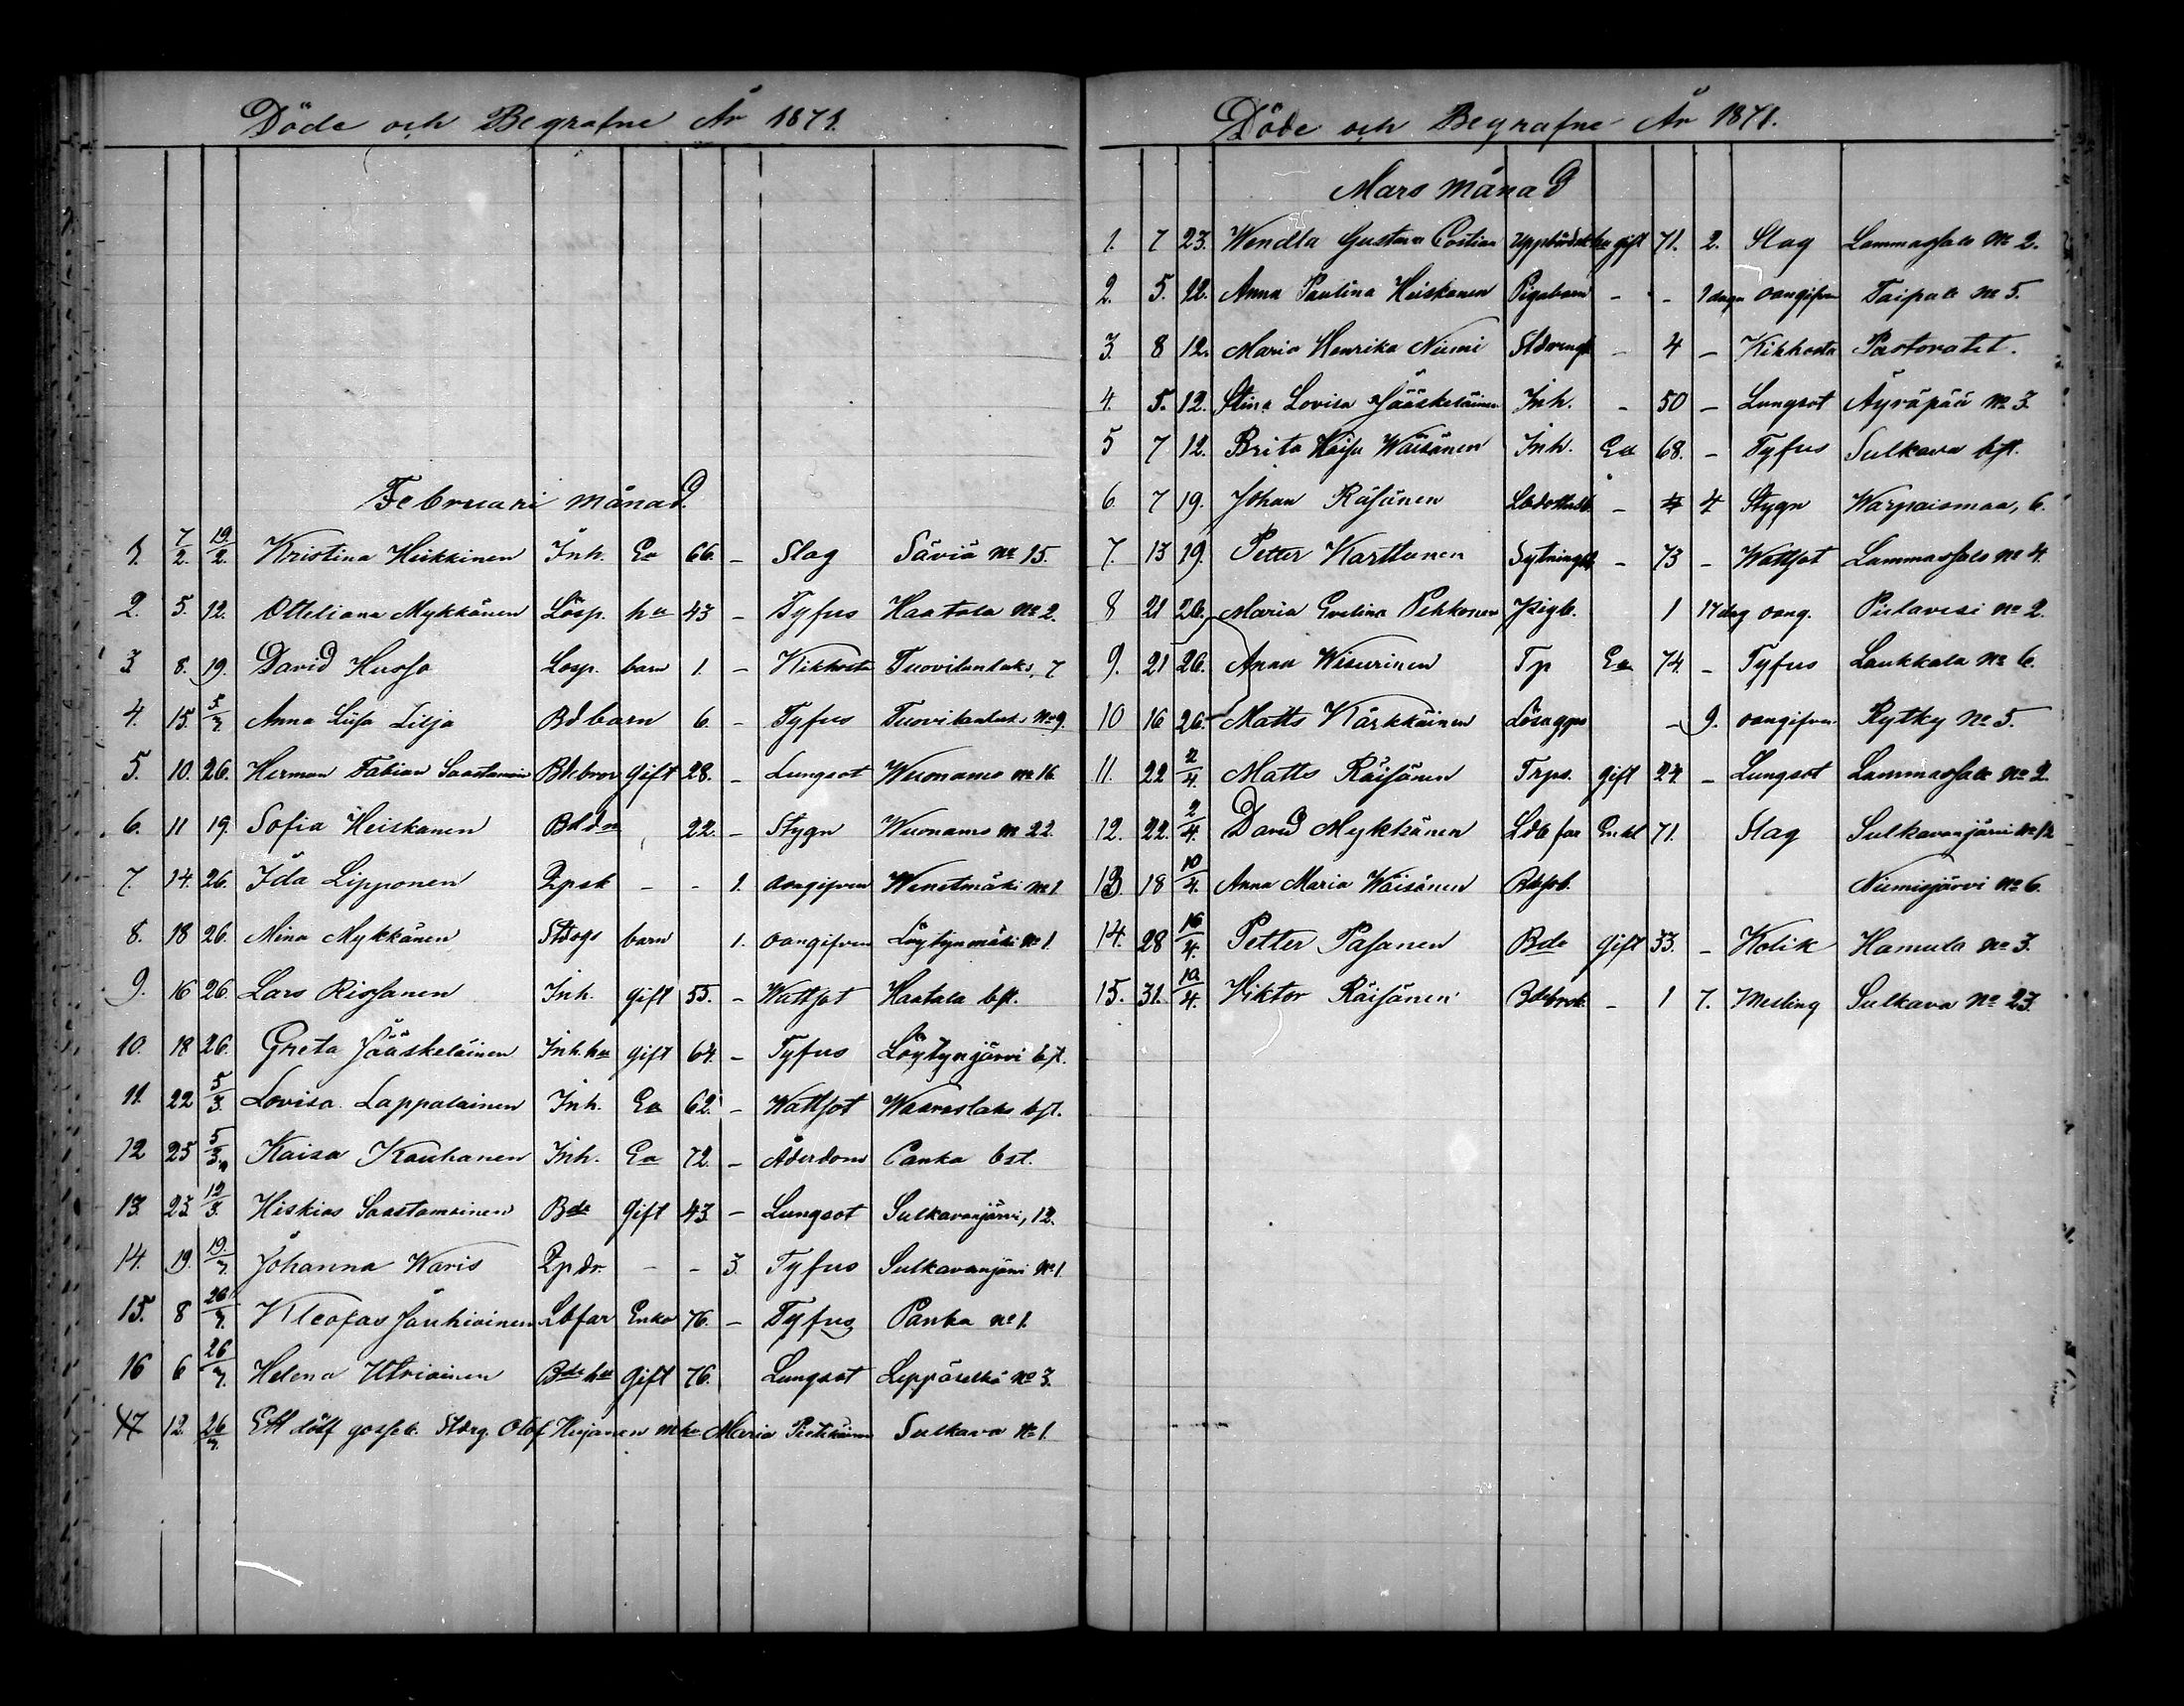 Döde och Begrafne År 1871.
Februari månad.
1. 7/2. 19/2. Kristina Heikkinen Inh. Ea 66. – Slag Säviä No 15.
2. 5. 12. Otteliana Mykkänen Lösp. hu 43 – Tyfus Haatala No 2.
3 8. 19. David Husso Losp. barn 1. – Kikhosta Tuovilanlaks, 7
4. 15. 5/3 Anna Lüsa Lilja Bd barn 6. – Tyfus Tuovilanlaks No 9.
5. 10. 26. Herman Fabian Saastamoin Bdebror Gift 28. – Lungsot Wuonamo No 16.
6. 11 19. Sofia Heiskanen Bddr 22. – Stygn Wuonamo No 22.
7. 14. 26. Ida Lipponen – – 1. oangifven Wenetmäki No 1
8. 18 26. Mina Mykkänen Stdogs barn 1. oangifven Löytynmäki No 1.
9. 16 26. Lars Rissanen Inh. gift 55. – Wattsot Haatala bst.
10. 18 26. Greta Jääskeläinen Inh. hu gift 64. – Tyfus Löytynjärvi bst.
11. 22 5/3. Lovisa Lappalainen Inh. Ea 62. – Wattsot Waaraslaks bst.
12 25 5/3. Kaisa Kauhanen Inh. Ea 72. – Ålderdom Panka bst.
13. 23 12/3. Hiskias Saastamoinen Bde Gift 43 – Lungsot Sulkavanjärvi, 12.
14. 19. 19/3. Johanna Waris – – 3. Tyfus Sulkavanjärvi No 1
15. 8 26/3. Kleofas Jauhiainen Lbfar Enkl 76. – Tyfus Panka No 1.
16 6 26/3. Helena Utriainen Bde hu Gift 76. Lungsot Leppäselkä No 3.
17 12. 26/3. Ett dödf gosseb. Stdrg. Olof Hujanen m hu Maria Pietikäinen Sulkava No 1.
Döde och Begrafne År 1871.
Mars månad
1. 7 23. Wendla Gustava Costian gift 71. 2. Slag Lammassalo No 2.
2. 5. 12. Anna Paulina Heiskanen Pigabarn – – 1 dagn oangifven Taipale No 5.
3. 8 12. Maria Henrika Niemi – 4 – Kikhosta Pastoratet.
4. 5. 12. Stina Lovisa Jääskeläinen Inh. – 50 – Lungsot Äyräpää No 3.
5 7 12. Brita Kaisa Wäisänen Inh. Ea 68. – Tyfus Sulkava bst.
6. 7 19. Johan Räisänen – 4 Stygn Warpaismaa, 6.
7. 13 19. Petter Karttunen Sytningsh – 73 – Wattsot Lammassalo No 4.
8 21 26. Maria Evelina Pehkonen Pigb. 1 17 dag oang. Pielavesi No 2.
9. 21 26. Anna Wisurinen Tp Ea 74. – Tyfus Laukkala No 6.
10 16 26. Matts Kärkkäinen Lösagps – 9. oangifven Rytky No 5.
11. 22 2/4. Matts Räisänen Trps. gift 24 – Lungsot Lammassalo No 2.
12. 22. 2/4. David Mykkänen Ldb far Enkl 71. Slag Sulkavanjärvi No 12
13. 18 10/4. Anna Maria Wäisänen Niemisjärvi No 6.
14. 28 16/4. Petter Pasanen Bde Gift 33. – Kolik Hamula No 3.
15. 31. 10/4. Viktor Räisänen – 1 7. Mesling Sulkava No 23